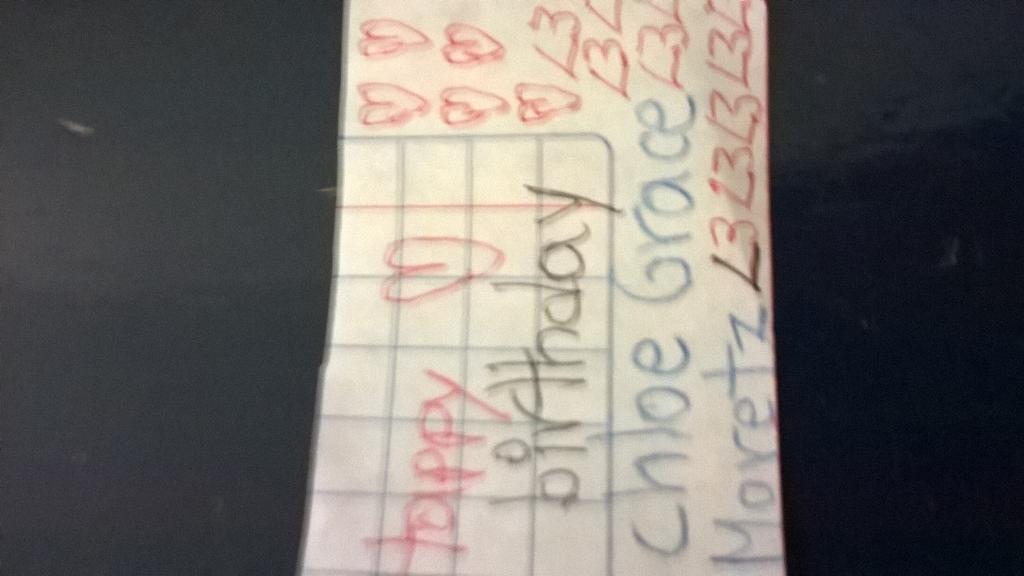 Happy
birthday <3
Chloe Grace <3 <3
Moretz <3 <3 <3 <3